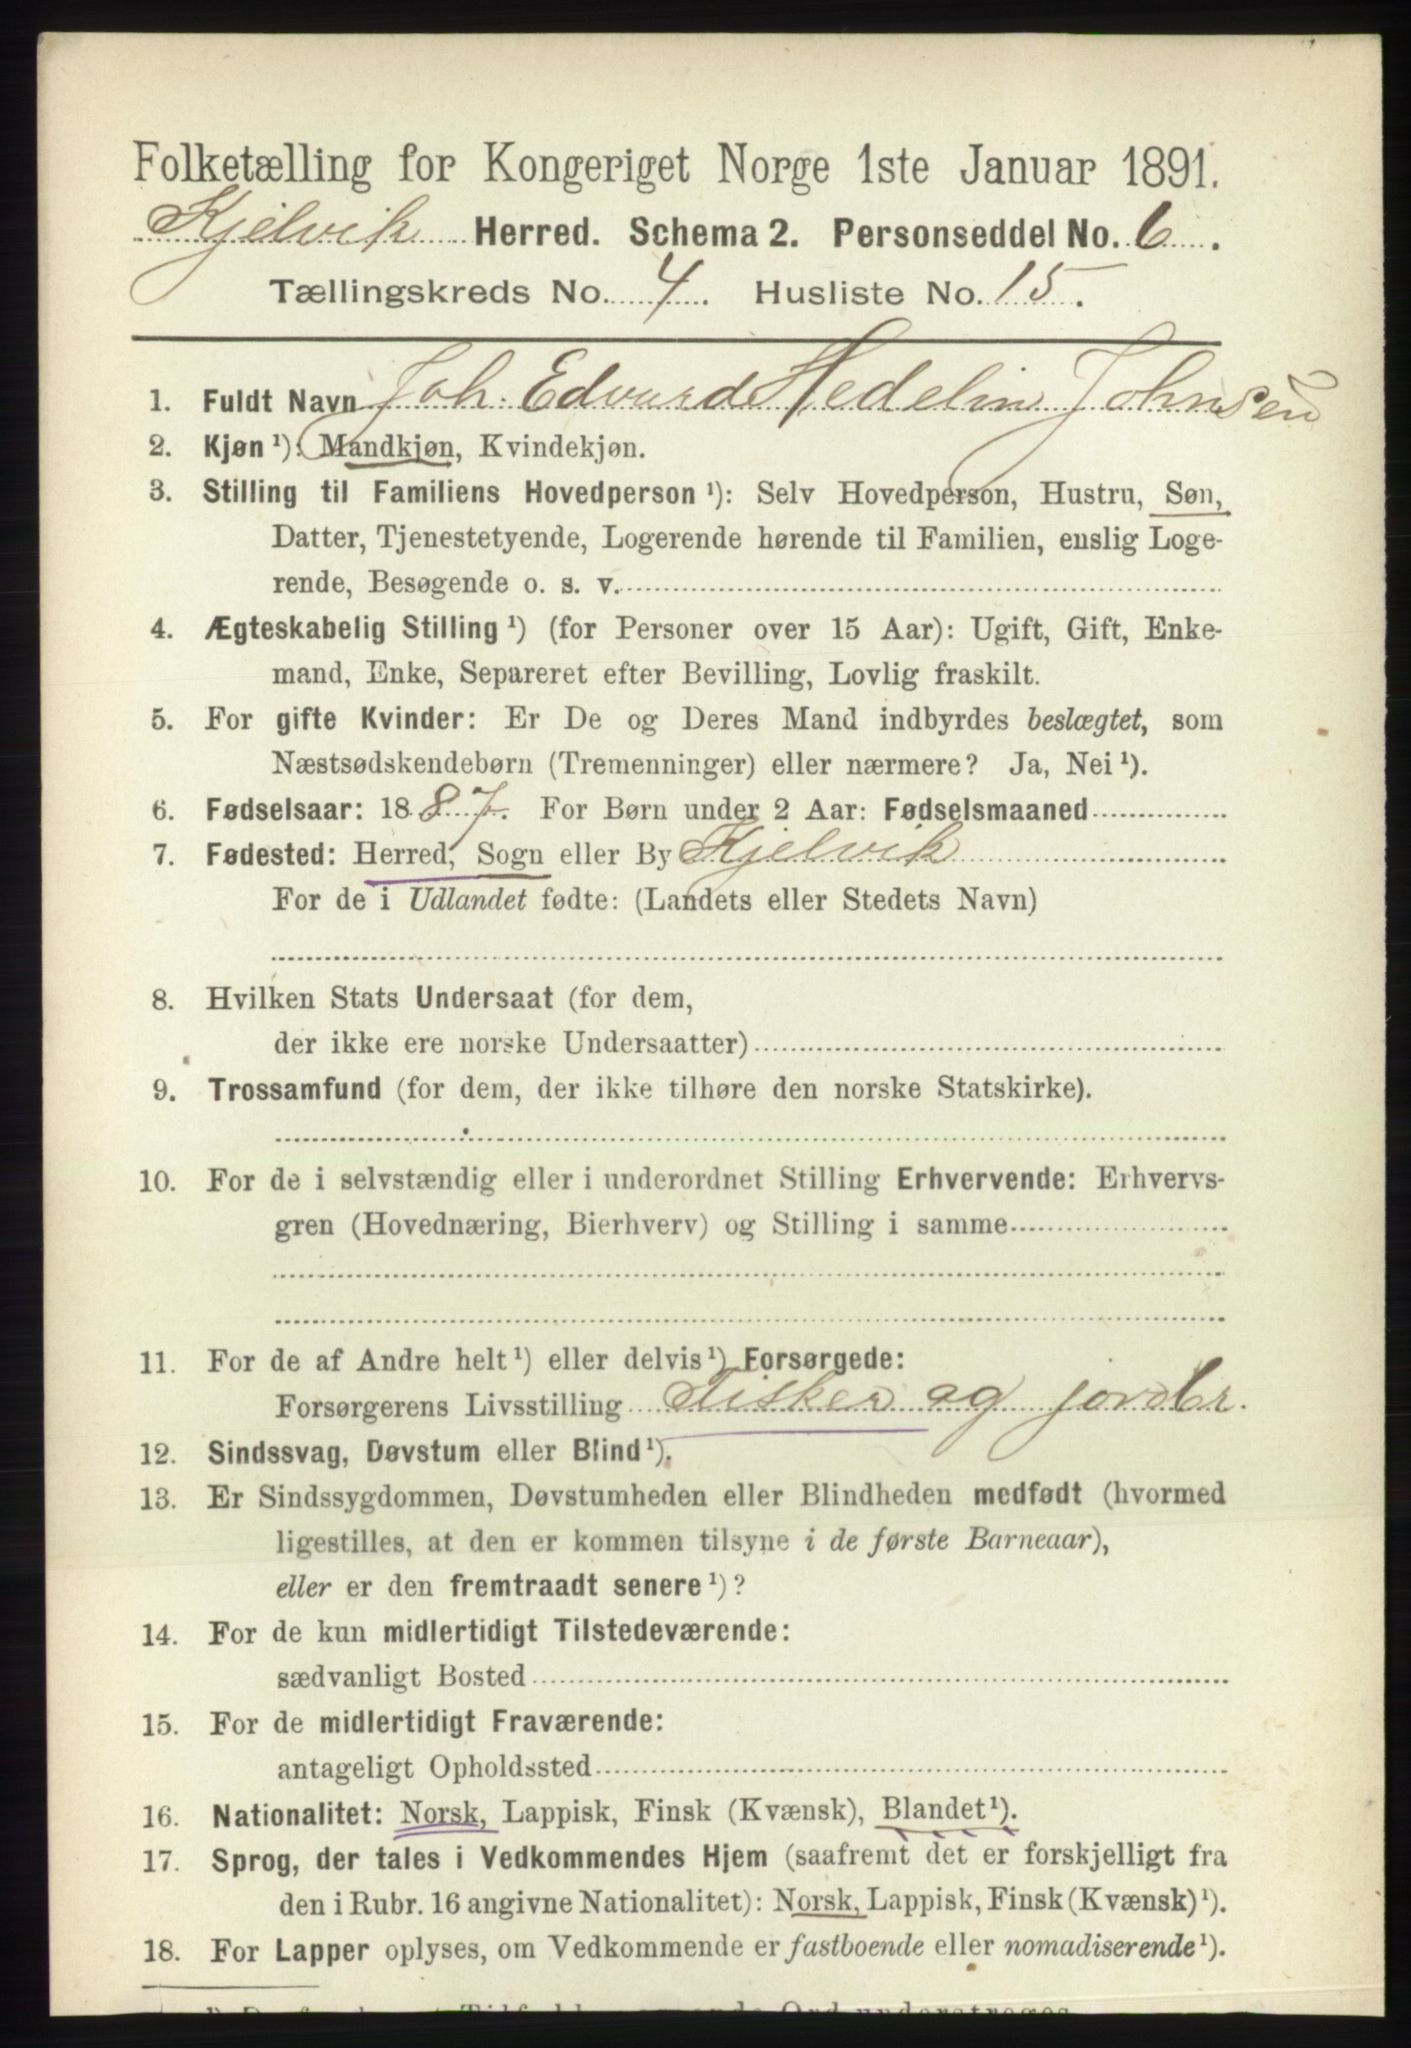 Folketælling for Kongeriget Norge 1ste Januar 1891.
Kjelvik Herred. Schema 2. Personseddel No. 6.
Tællingskreds No. 4. Husliste No. 15.
1. Fuldt Navn Joh. Edvard Hedelin Johnsen
2. Kjøn ¹): Mandkjøn, Kvindekjøn.
3. Stilling til Familiens Hovedperson ¹): Selv Hovedperson, Hustru, Søn,
Datter, Tjenestetyende, Logerende hørende til Familien, enslig Loge-
rende, Besøgende o. s. v.
4. Ægteskabelig Stilling ¹) (for Personer over 15 Aar): Ugift, Gift, Enke-
mand, Enke, Separeret efter Bevilling, Lovlig fraskilt.
5. For gifte Kvinder: Er De og Deres Mand indbyrdes beslægtet, som
Næstsødskendebørn (Tremenninger) eller nærmere? Ja, Nei ¹).
6. Fødselsaar: 1887. For Børn under 2 Aar: Fødselsmaaned
7. Fødested: Herred, Sogn eller By Kjelvik
For de i Udlandet fødte: (Landets eller Stedets Navn)
8. Hvilken Stats Undersaat (for dem,
der ikke ere norske Undersaatter)
9. Trossamfund (for dem, der ikke tilhøre den norske Statskirke).
10. For de i selvstændig eller i underordnet Stilling Erhvervende: Erhvervs-
gren (Hovednæring, Bierhverv) og Stilling i samme
11. For de af Andre helt ¹) eller delvis ¹) Forsørgede:
Forsørgerens Livsstilling Fisker og jordbr.
12. Sindssvag, Døvstum eller Blind ¹).
13. Er Sindssygdommen, Døvstumheden eller Blindheden medfødt (hvormed
ligestilles, at den er kommen tilsyne i de første Barneaar),
eller er den fremtraadt senere ¹)?
14. For de kun midlertidigt Tilstedeværende:
sædvanligt Bosted
15. For de midlertidigt Fraværende:
antageligt Opholdssted
16. Nationalitet: Norsk, Lappisk, Finsk (Kvænsk), Blandet ¹).
17. Sprog, der tales i Vedkommendes Hjem (saafremt det er forskjelligt fra
den i Rubr. 16 angivne Nationalitet): Norsk, Lappisk, Finsk (Kvænsk) ¹).
18. For Lapper oplyses, om Vedkommende er fastboende eller nomadiserende ¹).